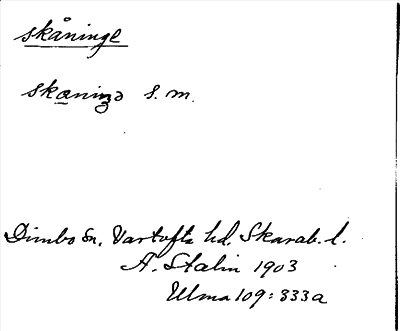 skåninge
skaninə s.m.
Dimbo sn, Vartofta hd. Skarab. l.
A. Stalin 1903
Ulma 109:333a